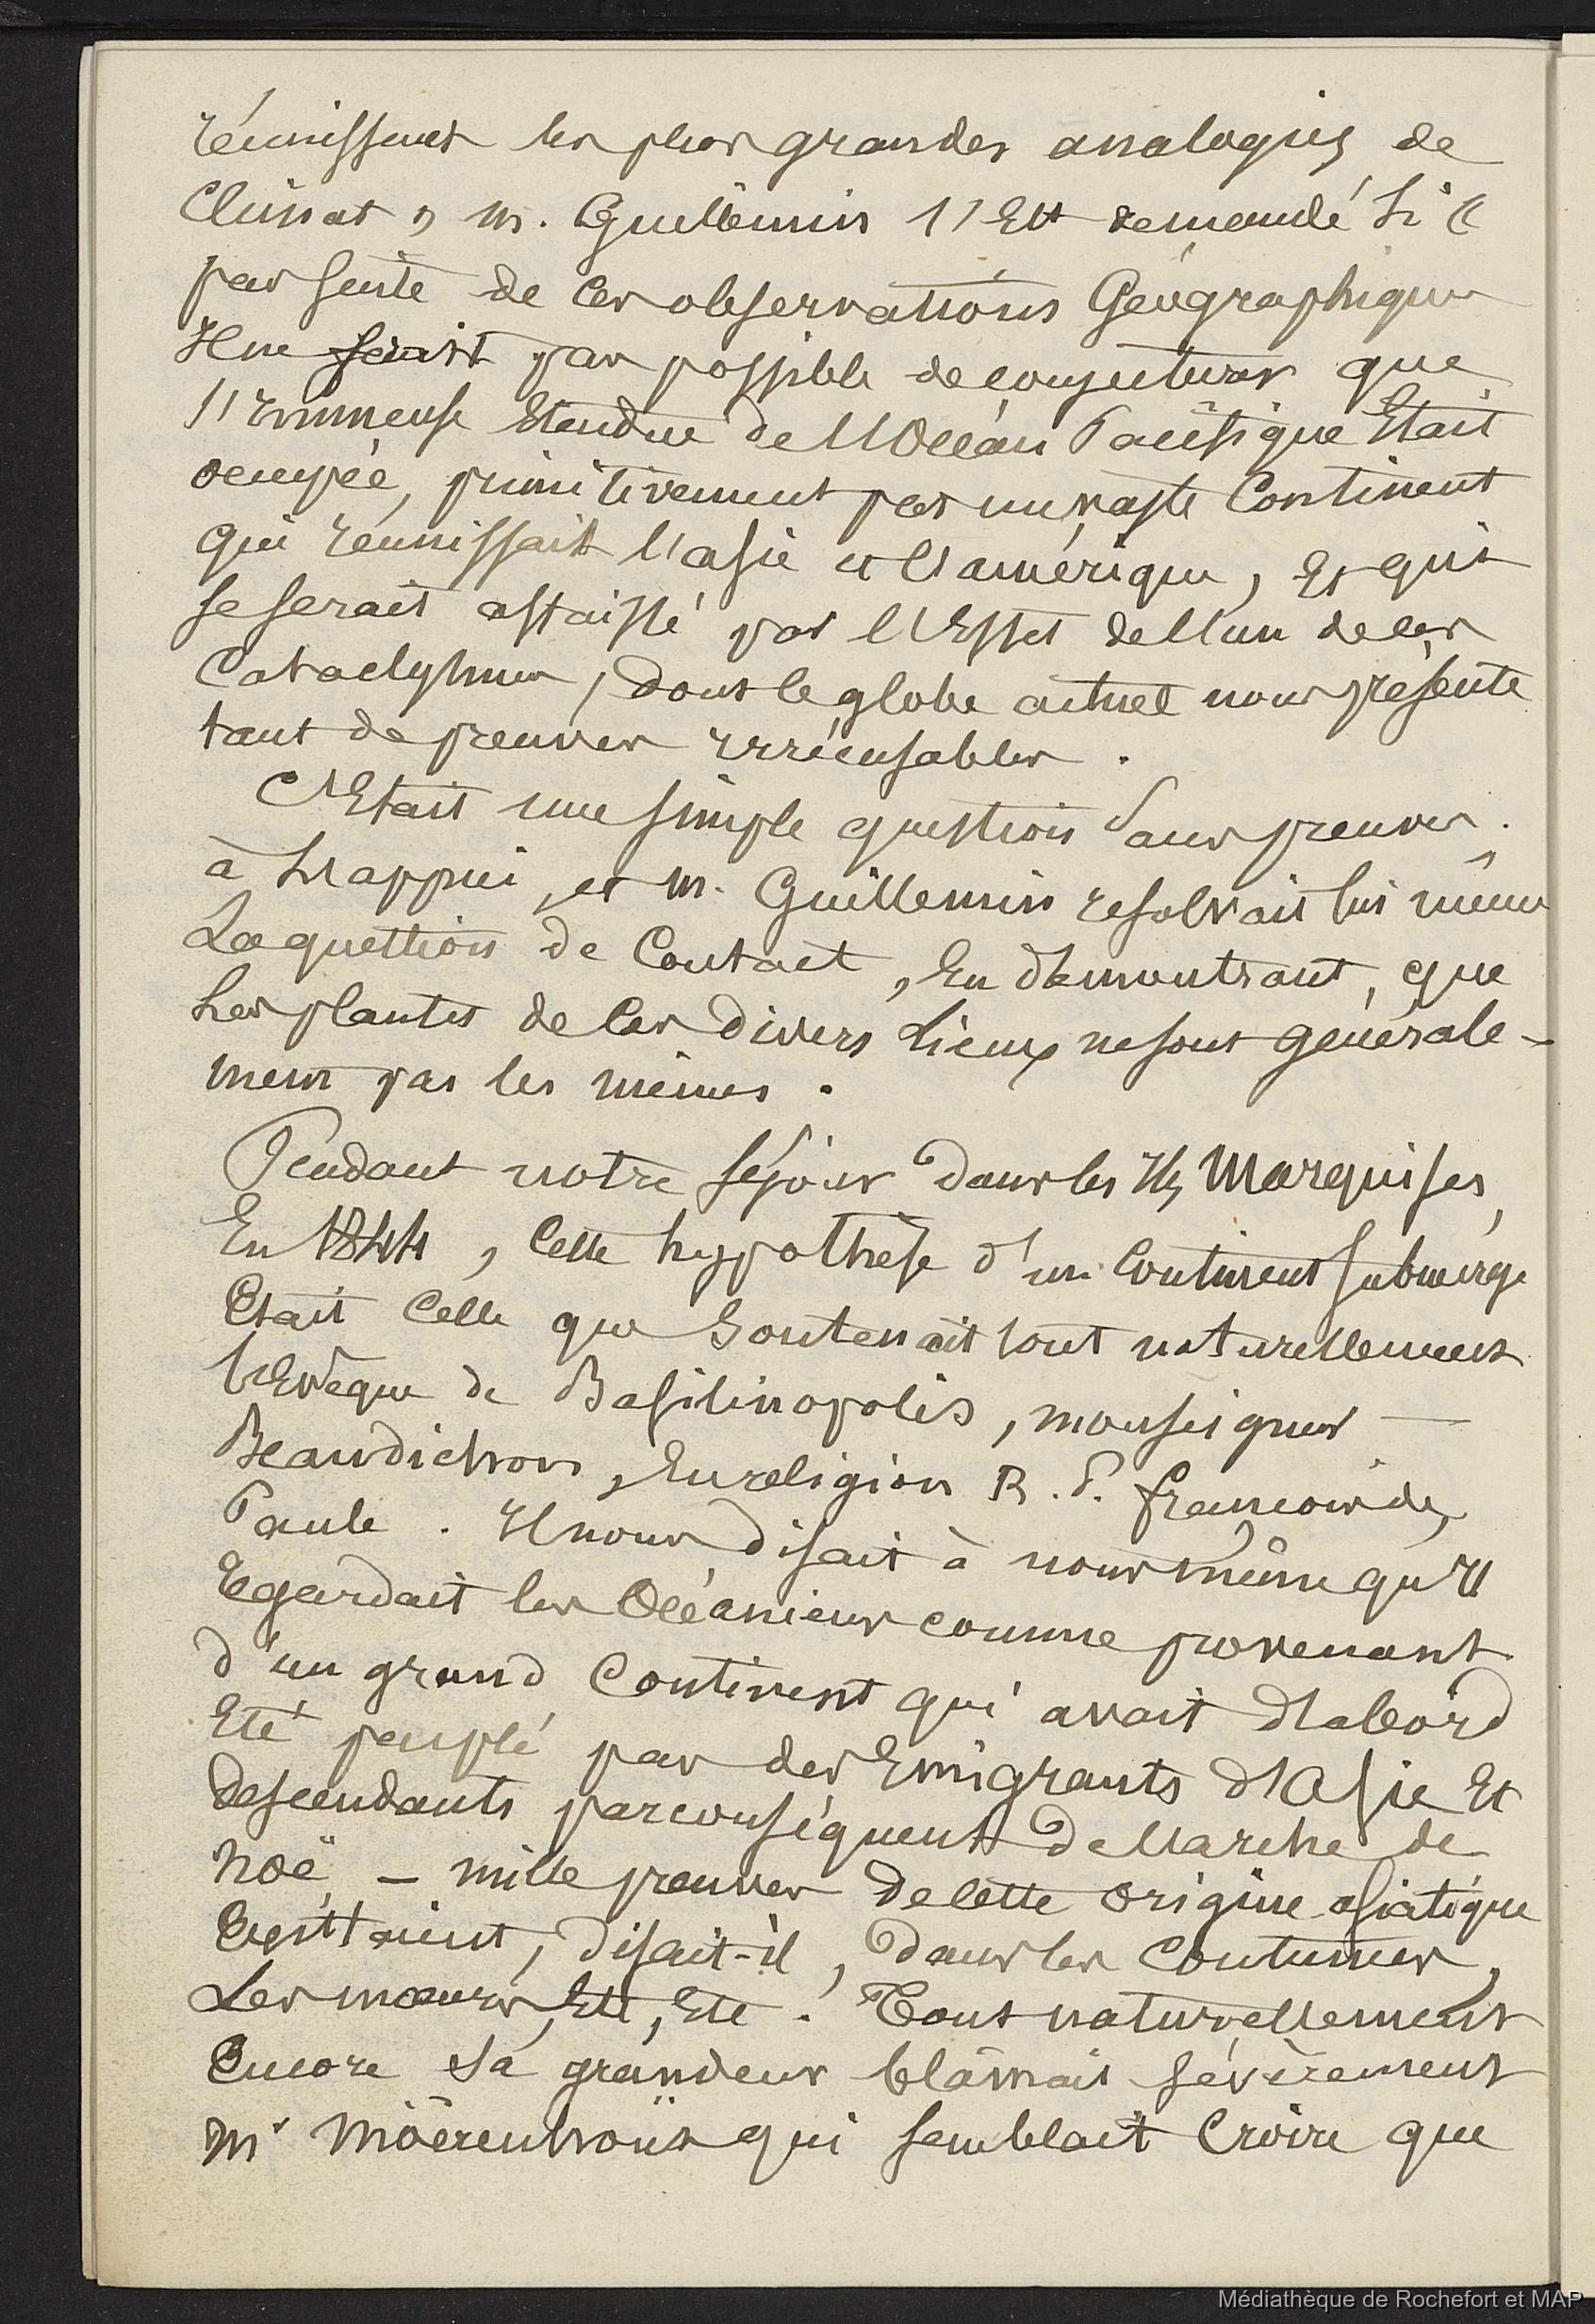 réunissant les plus grandes analogies de
Climat, m. Guillemin s'est demandé si «
par suite de ces observations Géographiques
Il ne serait pas possible de conjecturer que
l'immense Etendue de l'Océan Pacifique Etait
occupée, primitivement par un vaste Continent
qui réunissait l'asie et l'amérique, Et qui
se serait affaissé par l'Effet de l'un de ces
Cataclysmes, dont le globe actuel nous présente
tant de preuves irrécusables.
C'Etait une simple question Sans preuves
à l'appui, et m. Guillemin resolvait lui même
La question de Contact, En démontrant, que
Les plantes de Ces divers Lieux ne sont générale-
ment pas les mêmes.
Pendant notre séjour dans les Iles Marquises,
En 1844, Cette hypothèse d'un Continent submergé
Etait Celle que Soutenait tout naturellement
l'Evêque de Basilinopolis, monseigneur —
Beaudichon, En religion R. P. françois de
Paule. Il nous disait à nous même qu'il
regardait les Océaniens comme provenant
d'un grand Continent qui avait d'abord
Eté peuplé par des Emigrants d'Asie Et
descendants par conséquent de l'arche de
Noë – mille preuves de cette origine asiatique
Existaient, disait-il, dans les Coutumes,
Les mœurs, Etc, Etc. Tout naturellement
Encore Sa grandeur blâmait sévèrement
Mr Möerenhoüt qui semblait Croire que
Médiathèque de Rochefort et MAP